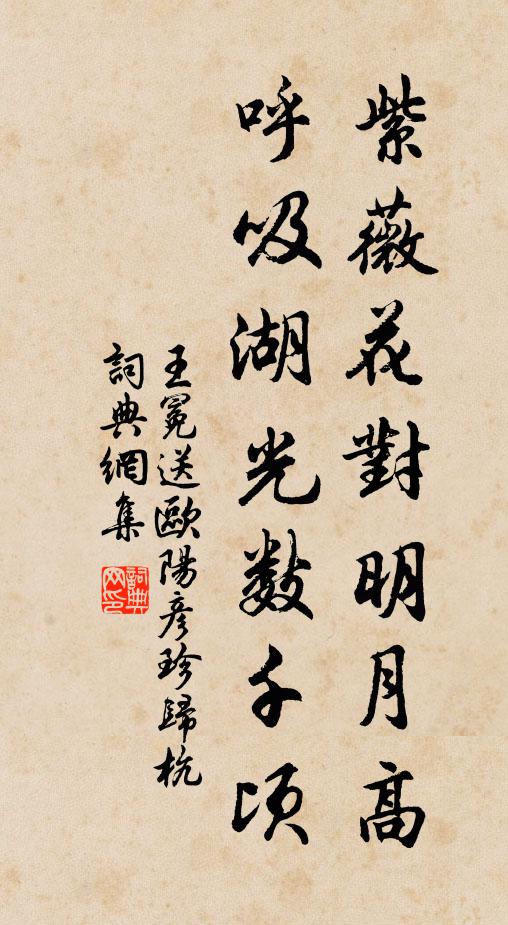 紫薇花對明月高
呼吸湖光數千頃
王冕送歐陽彥珍歸杭
詞典網集
詞典網印